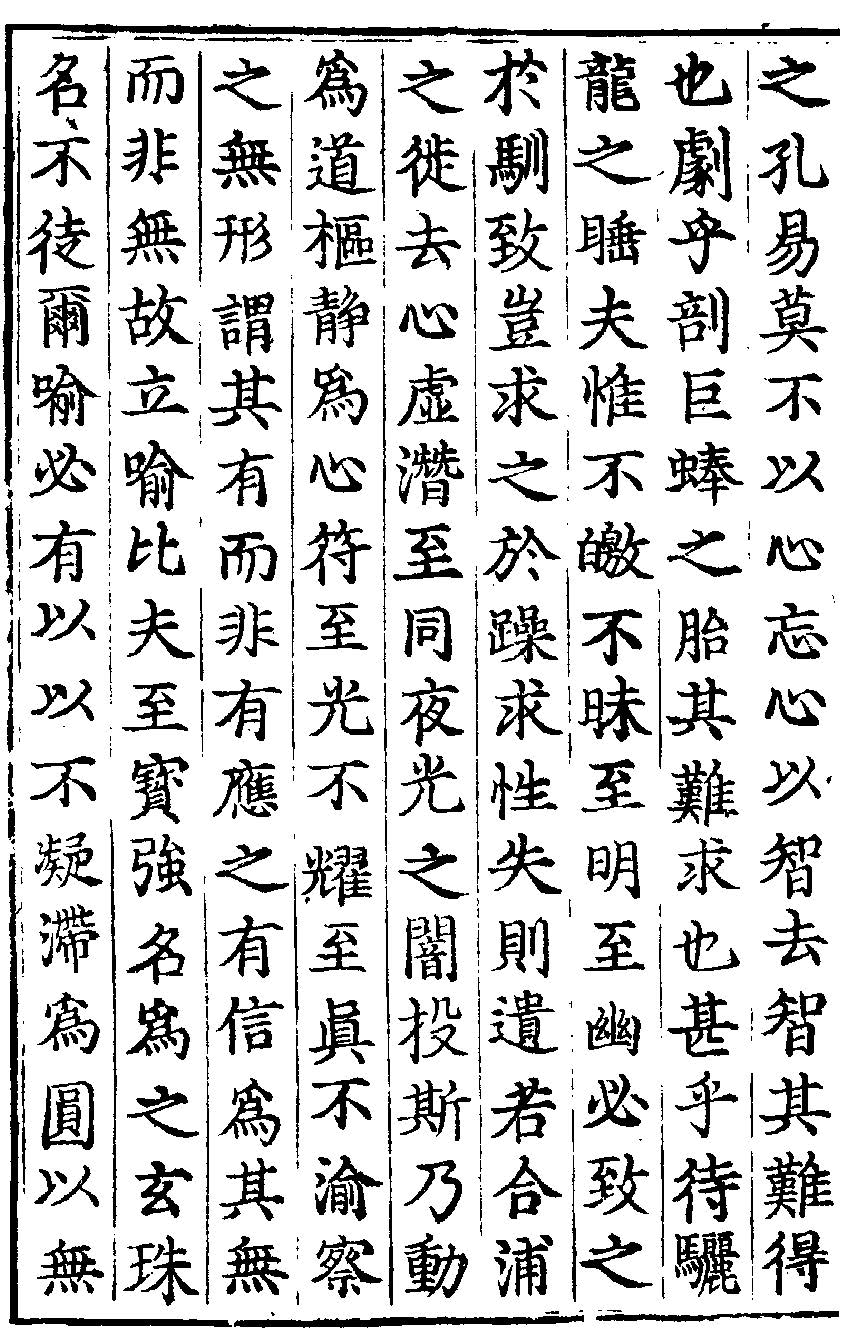 之孔易莫不以心忘心以智去智其難得
也劇乎剖巨蜯之胎其難求也甚乎待驪
龍之睡夫惟不皦不昧至明至幽必致之
於馴致豈求之於躁求性失則遺若合浦
之徙去心虛潛至同夜光之闇投斯乃動
爲道樞静爲心符至光不耀至眞不渝察
之無形謂其有而非有應之有信爲其無
而非無故立喻比夫至寳強名爲之玄珠
名不徒爾喻必有以以不凝滯爲圓以無